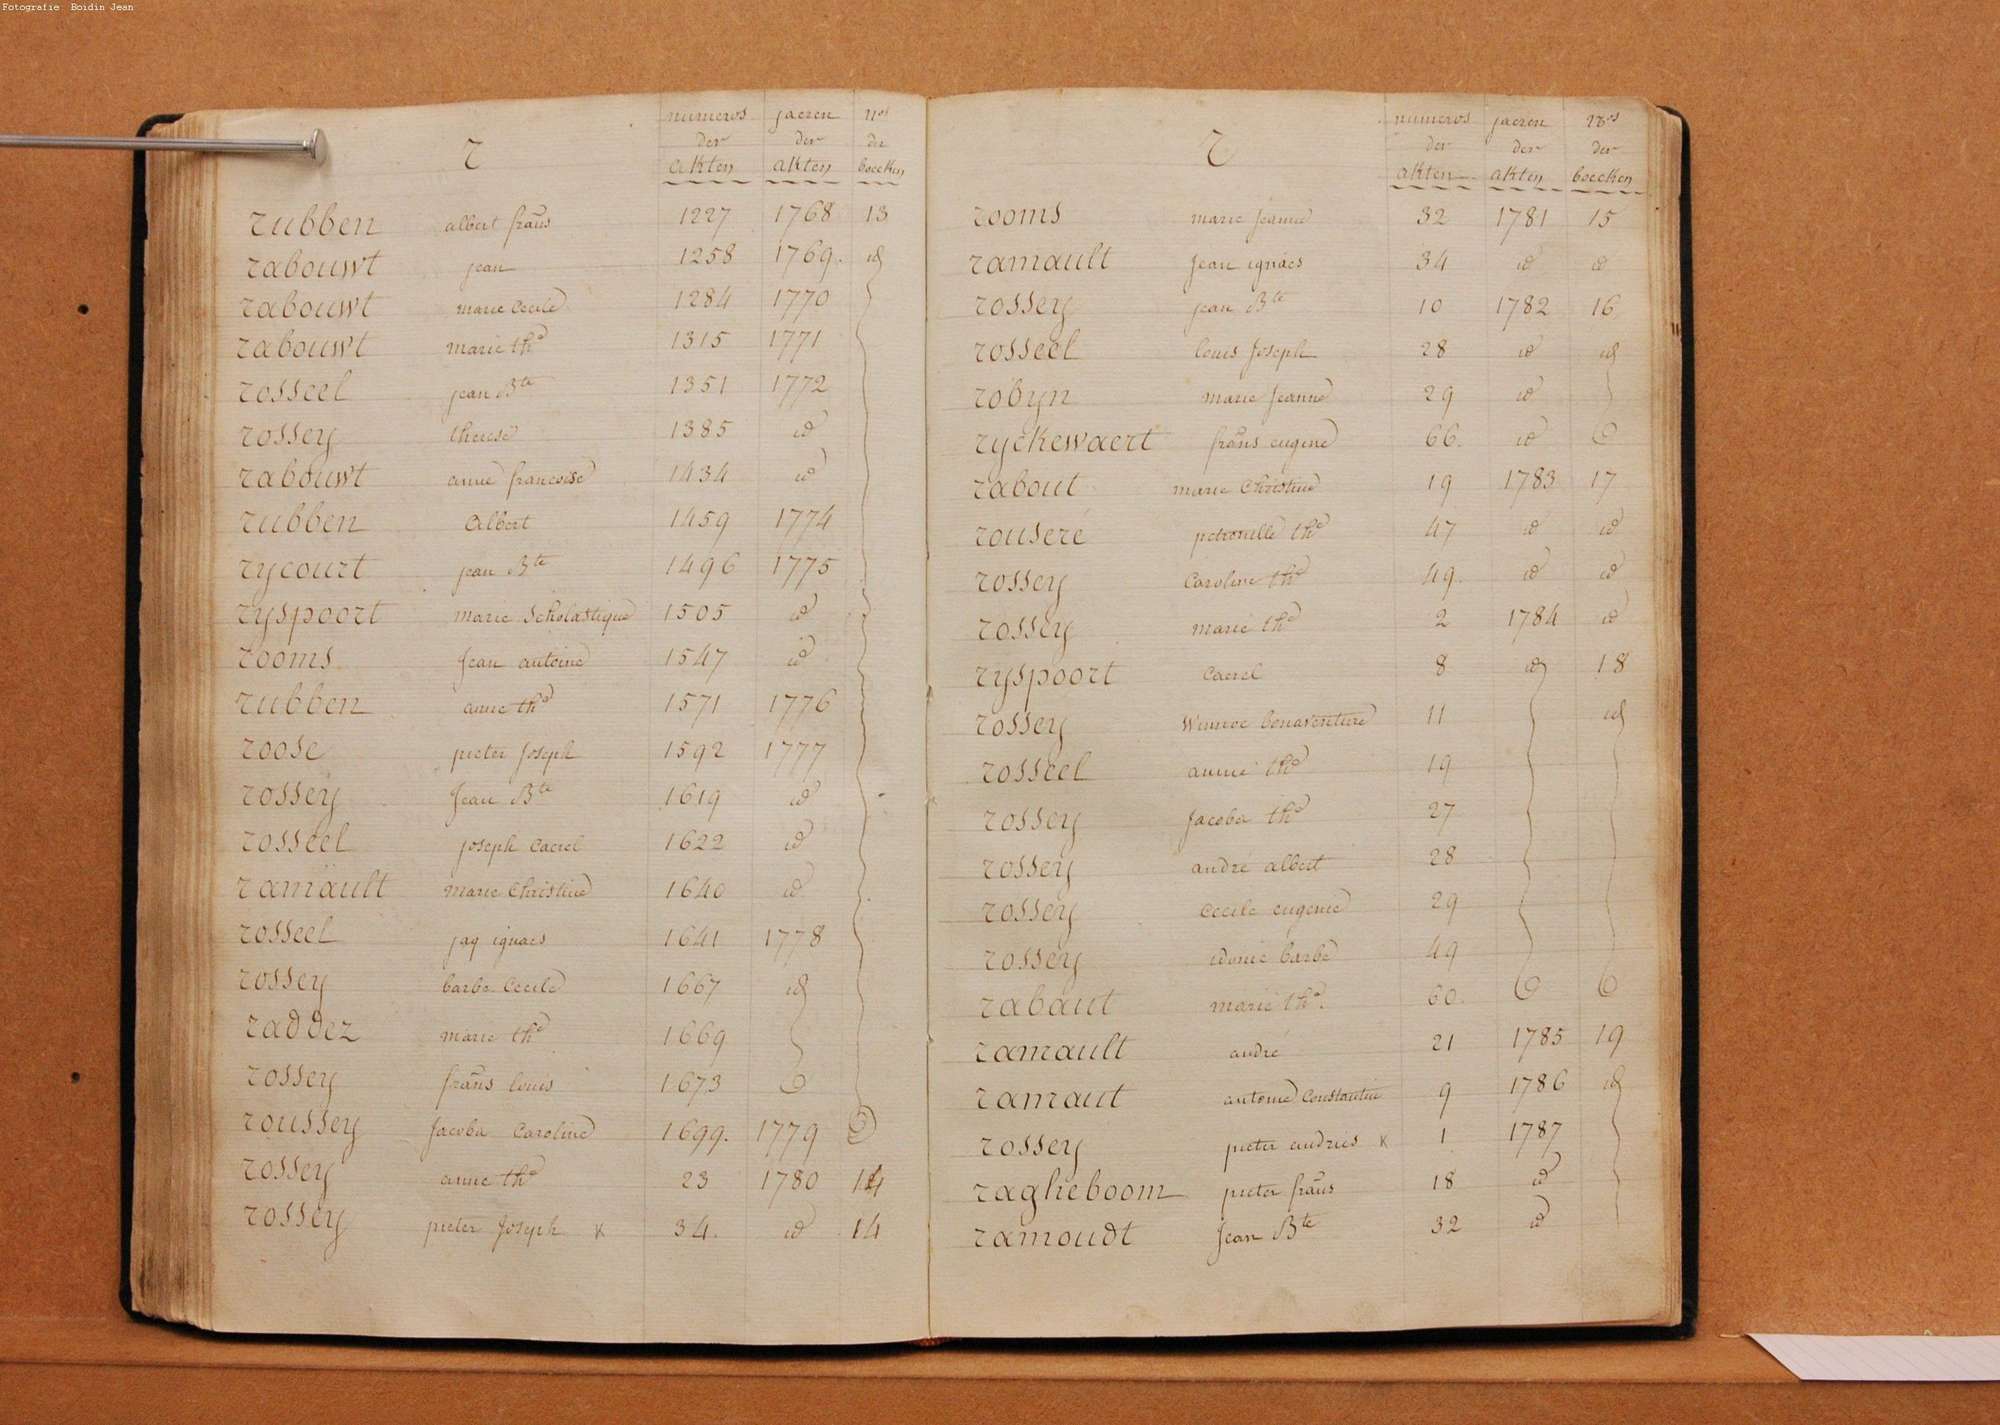 Fotografie Boidin Jean
r
numeros jaeren nos
der der der
akten akten boecken
rubben albert frans 1227 1768 13
rabouwt jean 1258 1769. id
rabouwt marie Cecile 1284 1770
rabouwt marie the 1315 1771
rosseel jean Bte 1351 1772
rossey therese 1385 id
rabouwt anne francoise 1434 id
rubben Albert 1459 1774
rycourt jean Bte 1496 1775
ryspoort marie Scholastique 1505 id
rooms Jean antoine 1547 id
rubben anne the 1571 1776
roose pieter Joseph 1592 1777
rossey Jean Bte 1619 id
rosseel joseph Carel 1622 id
ramault marie Christine 1640 id
rosseel jaq ignaes 1641 1778
rossey barbe Cecile 1667 id
raddez marie the 1669
rossey frans louis 1673
roussey Jacoba Caroline 1699. 1779
rossey anne the 23 1780 14
rossey pieter Joseph x 34. id 14
r
numeros jaeren nos
der der der
akten akten boecken
rooms marie Jeanne 32 1781 15
ramault Jean ignaes 34 id id
rossey jean Bte 10 1782 16
rosseel louis Joseph 28 id id
robyn marie Jeanne 29 id
ryckewaert frans eugene 66. id
rabout marie Christine 19 1783 17
rouseré petronille the 47 id id
rossey Caroline the 49. id id
rossey marie the 2 1784 id
ryspoort Caerel 8 id 18
rossey Winnoc bonaventure 11 id
rosseel anne the 19
rossey Jacoba the 27
rossey andré albert 28
rossey Cecile eugenie 29
rossey idonie barbe 49
rabaut marie the. 60.
ramault andré 21 1785 19
ramaut antoine Constantin 9 1786 id
rossey pieter andries x 1 1787
ragheboom pieter frans 18 id
ramoudt Jean Bte 32 id